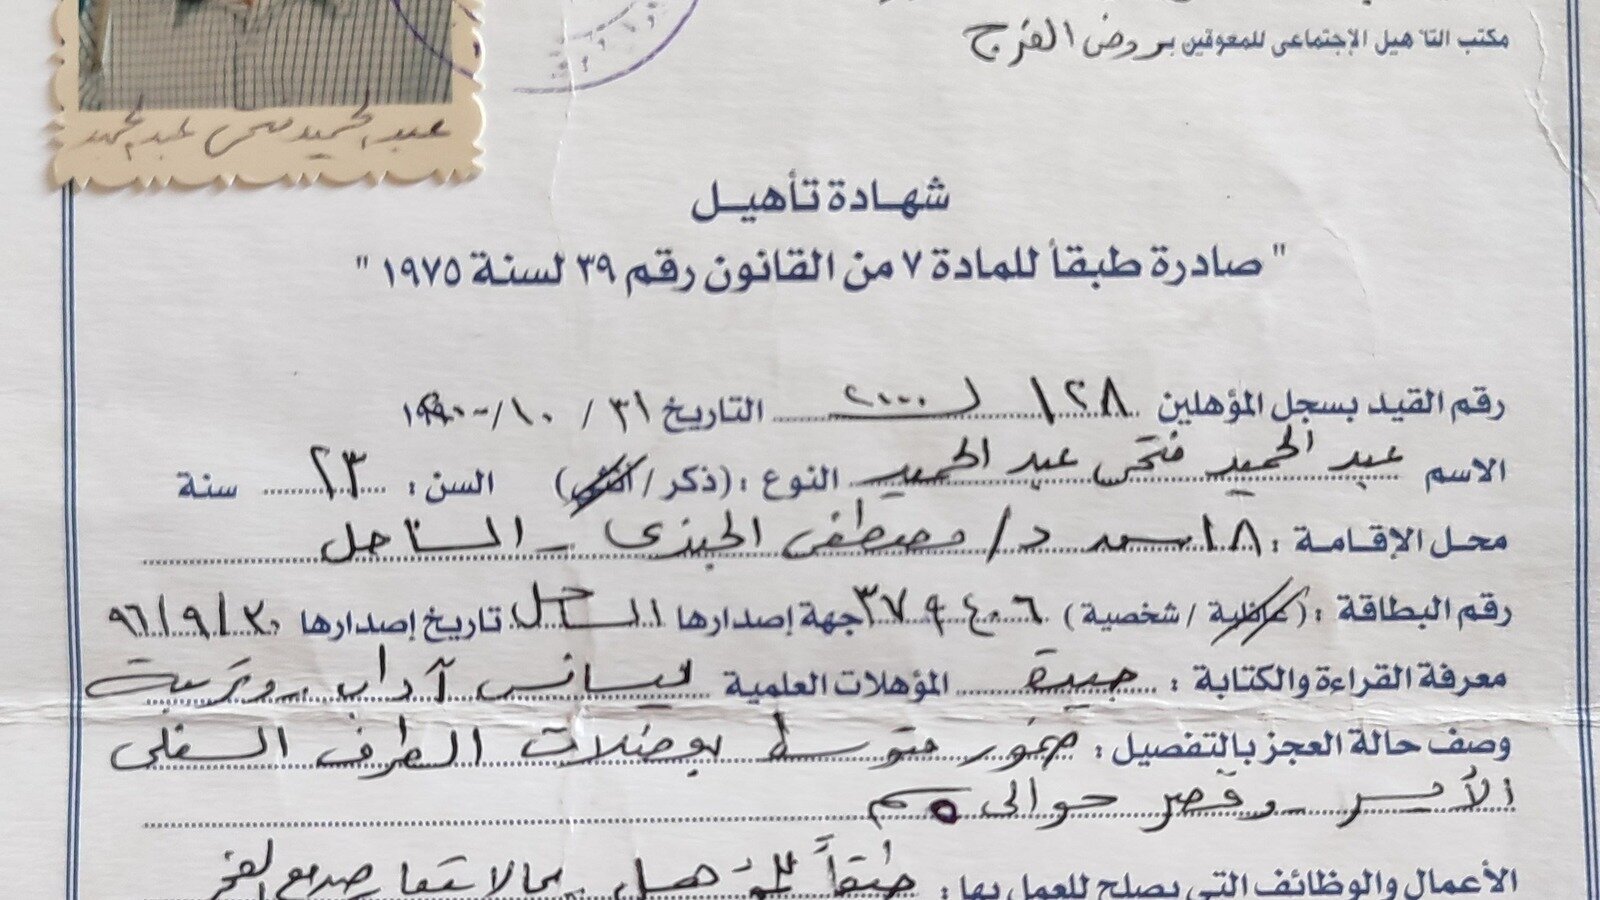 مكتب التأهيل الإجتماعى للمعوقين بروض الفرج
عبد الحميد فتحى عبد الحميد
شهادة تأهيل
" صادرة طبقاً للمادة ٧ من القانون رقم ٣٩ لسنة ١٩٧٥ "
رقم القيد بسجل المؤهلين ١٢٨ لـ ٢٠٠٠ التاريخ ٣١ / ١٠ /
الاسم عبد الحميد فتحى عبد الحميد النوع : (ذكر / أنثى) السن : ٢٣ سنة
محل الإقامة : ١٨ د/ مصطفى - الساحل
رقم البطاقة : (عائلية / شخصية) ٣٧٩٤٠٦ جهة إصدارها الساحل تاريخ إصدارها ٩٦/٩/٣٠
معرفة القراءة والكتابة : جيدة المؤهلات العلمية ليسانس آداب وتربية
وصف حالة العجز بالتفصيل : ضمور متوسط بعضلات الطرف السفلى
الأيسر وقصر حوالى ٥ سم
الأعمال والوظائف التى يصلح للعمل بها : طبقاً للمؤهل